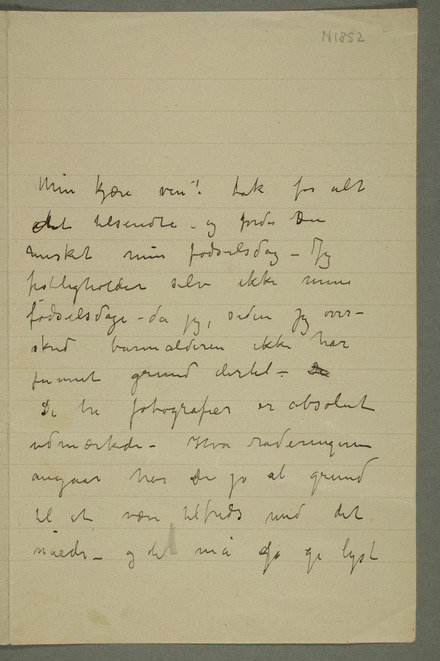 N1852
Min kjære ven! tak for alt
det tilsendte – og fordi Du
husket min fødselsdag – Jeg
festligholder selv ikke mine
fødselsdage – da jeg, siden jeg over-
skred barnalderen ikke har
funnet grund dertil –
De tre fotografier er absolut
udmærkede – Hva raderingerne
angaar har De jo al grund
til at være tilfreds med det
nåede – og det må jo gi lyst